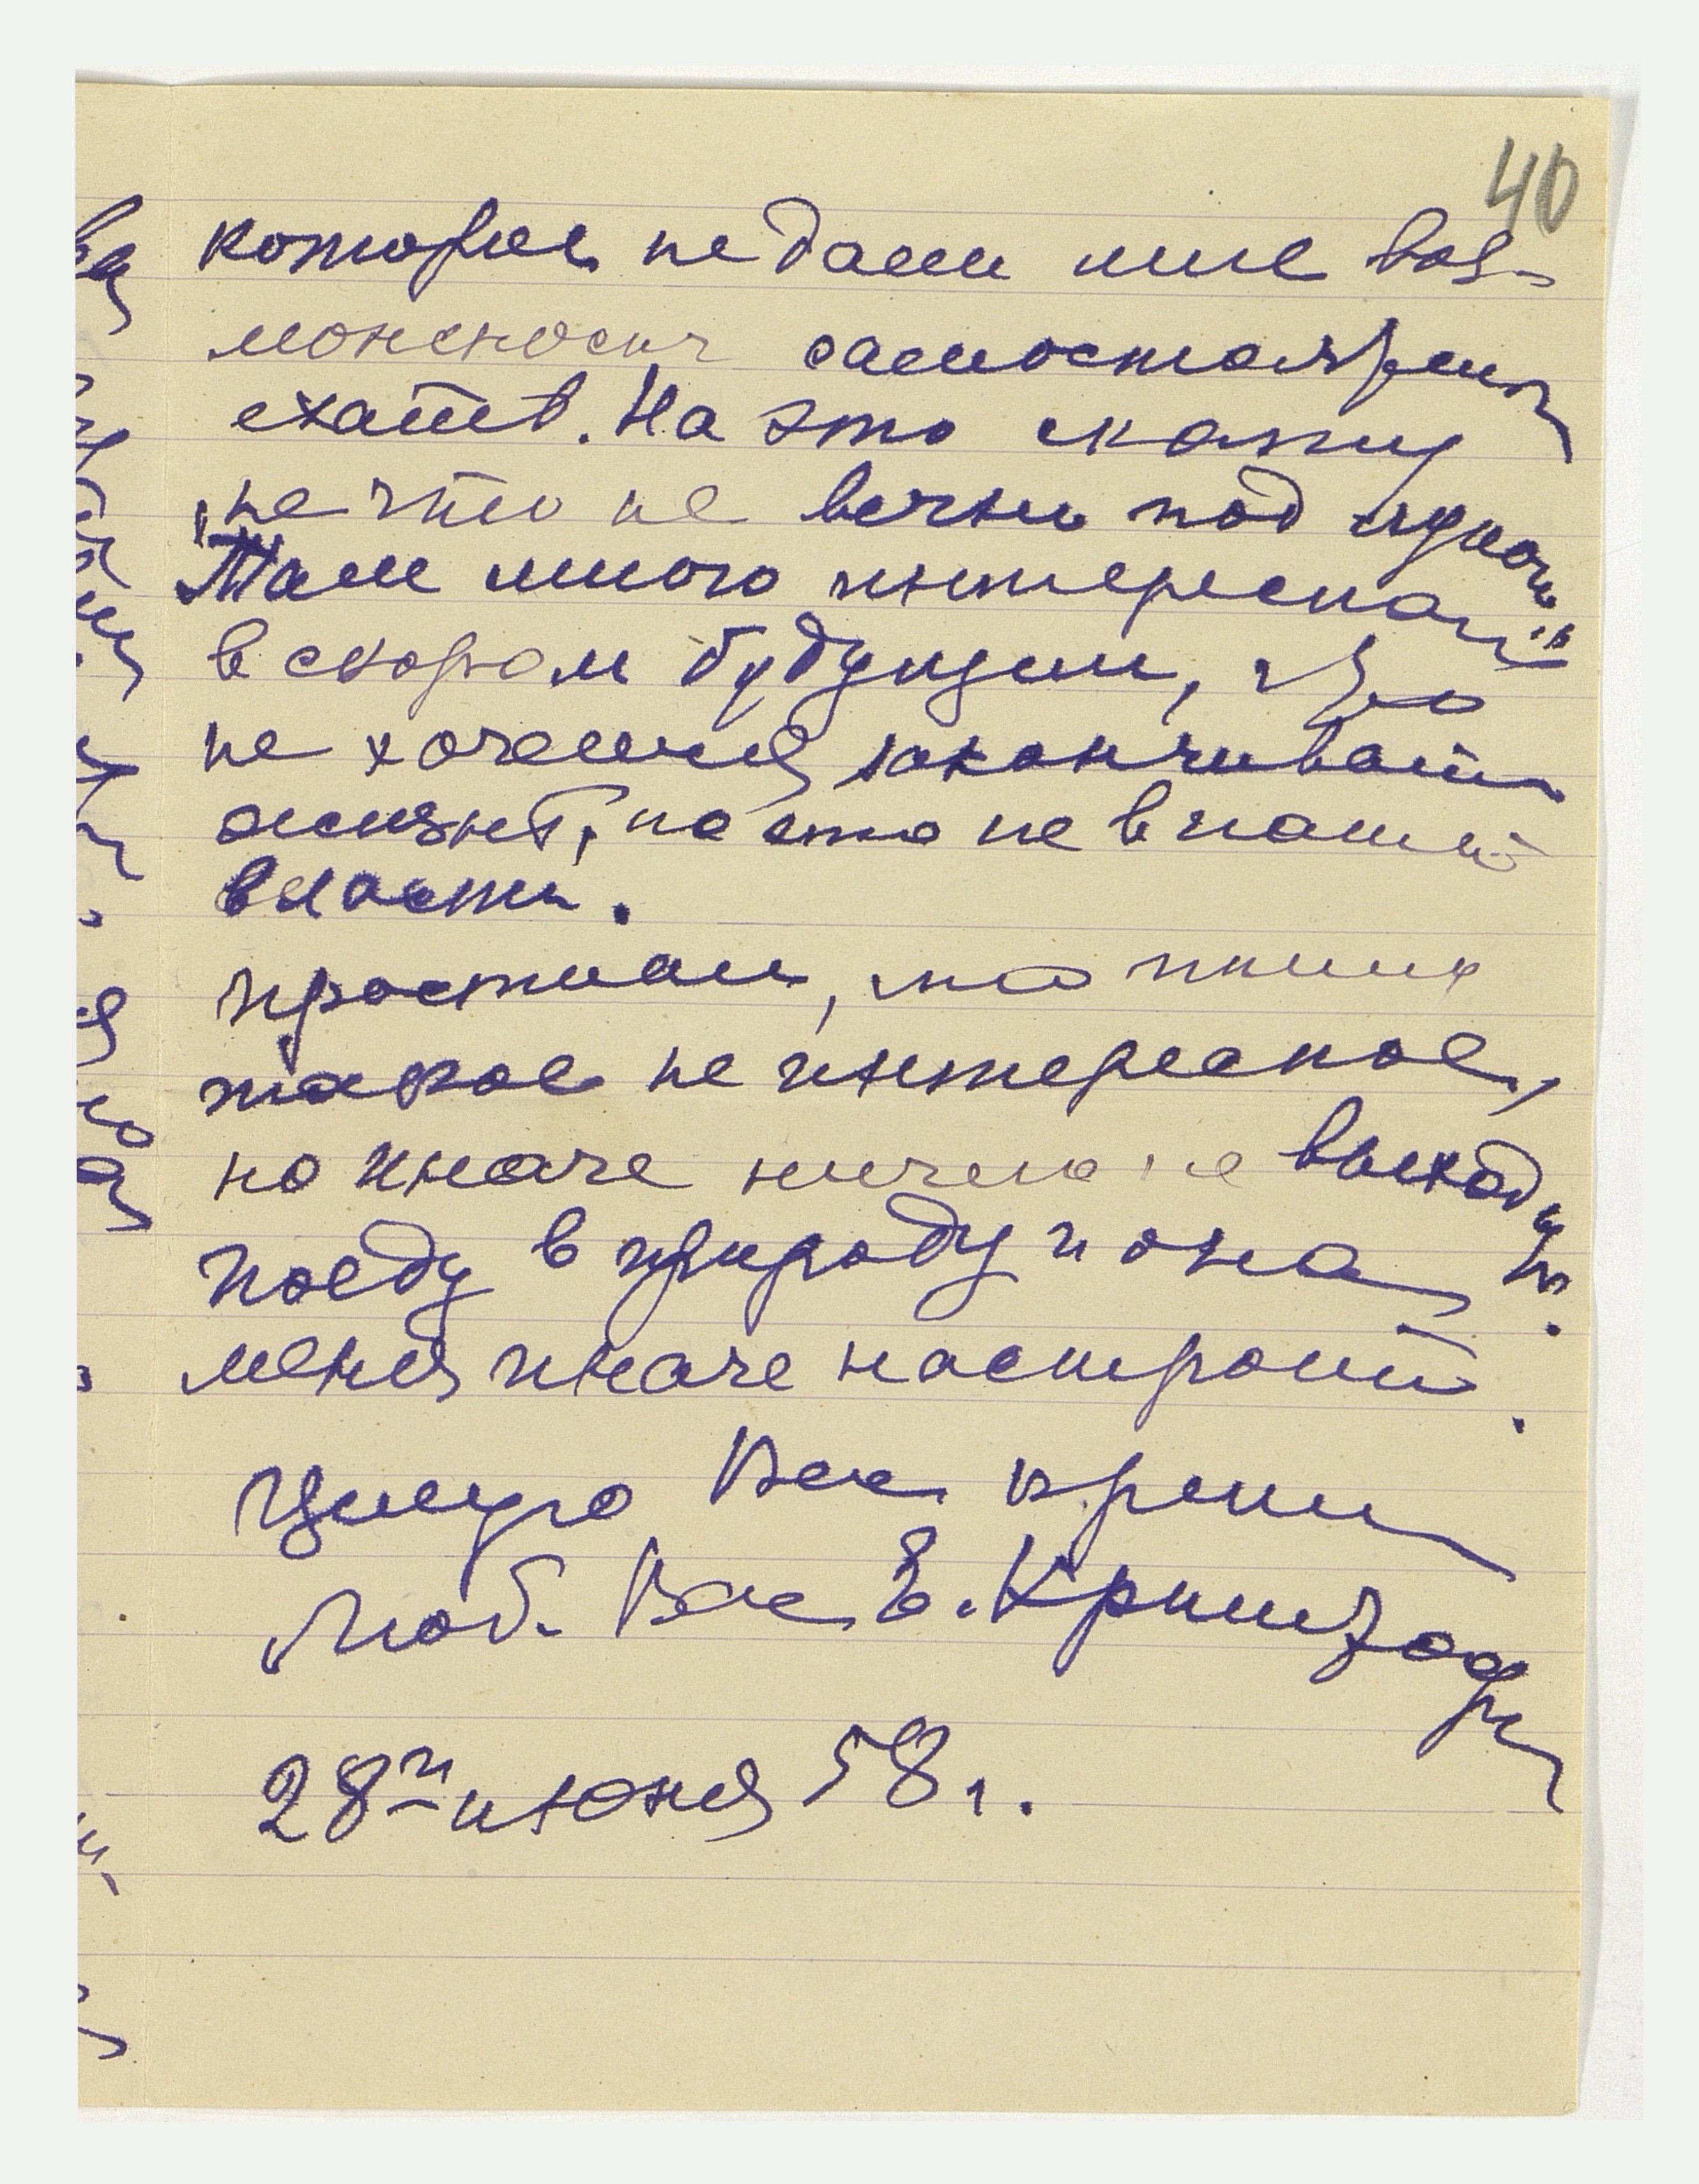 40
которые не дали мне воз-
можность самостоятельн
ехать. На это скажу
"не что не вечно под луною"
Там много интересного
в скором будущем, что
не хочется заканчивать
жизнь, но это не в нашей
власти.
Простите, что пишу
такое не интересное,
но иначе ничего не выходит.
Поеду в природу и она
меня иначе настроит.
Целую Вас крепко
Люб. Вас Е.
28го июня 58 г.